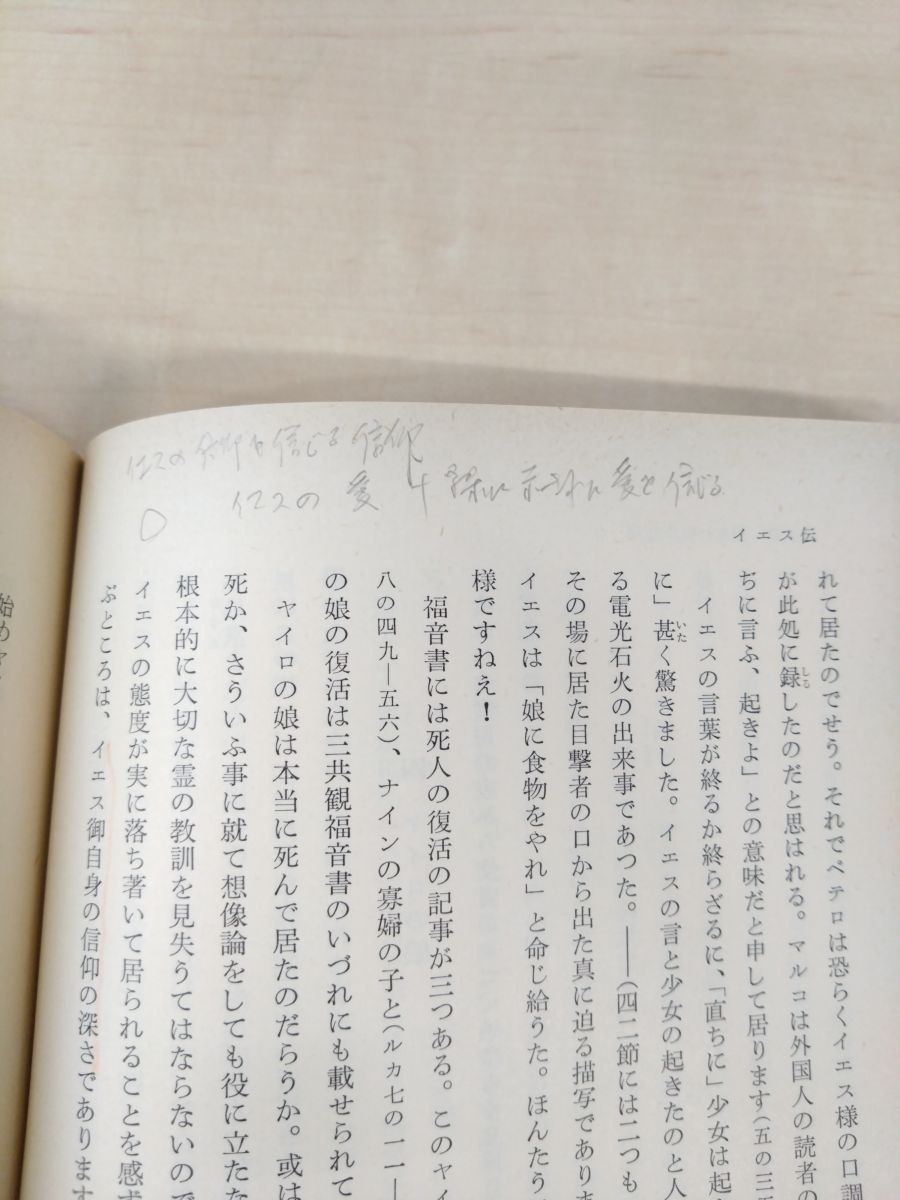 イエスの信仰を信じる信仰
イエスの 愛 十字架に示された愛を信じる
イエス伝
れて居たのでせう。それでペテロは恐らくイエス様の口調
が此処に録したのだと思はれる。マルコは外国人の読者の
ぢに言ふ、起きよ」との意味だと申して居ります(五の三
イエスの言葉が終るか終らざるに、「直ちに」少女は起き
に」甚く驚きました。イエスの言と少女の起きたのと人
る電光石火の出来事であつた。――(四二節には二つも
その場に居た目撃者の口から出た真に迫る描写でありま
イエスは「娘に食物をやれ」と命じ給うた。ほんたう
様ですねえ!
福音書には死人の復活の記事が三つある。このヤイ
八の四九―五六)、ナインの寡婦の子と(ルカ七の一一―
の娘の復活は三共観福音書のいづれにも載せられて
ヤイロの娘は本当に死んで居たのだらうか。或は
死か、さういふ事に就て想像論をしても役に立たな
根本的に大切な霊の教訓を見失うてはならないので
イエスの態度が実に落ち著いて居られることを感ず
ぶところは、イエス御自身の信仰の深さであります
始めヤ